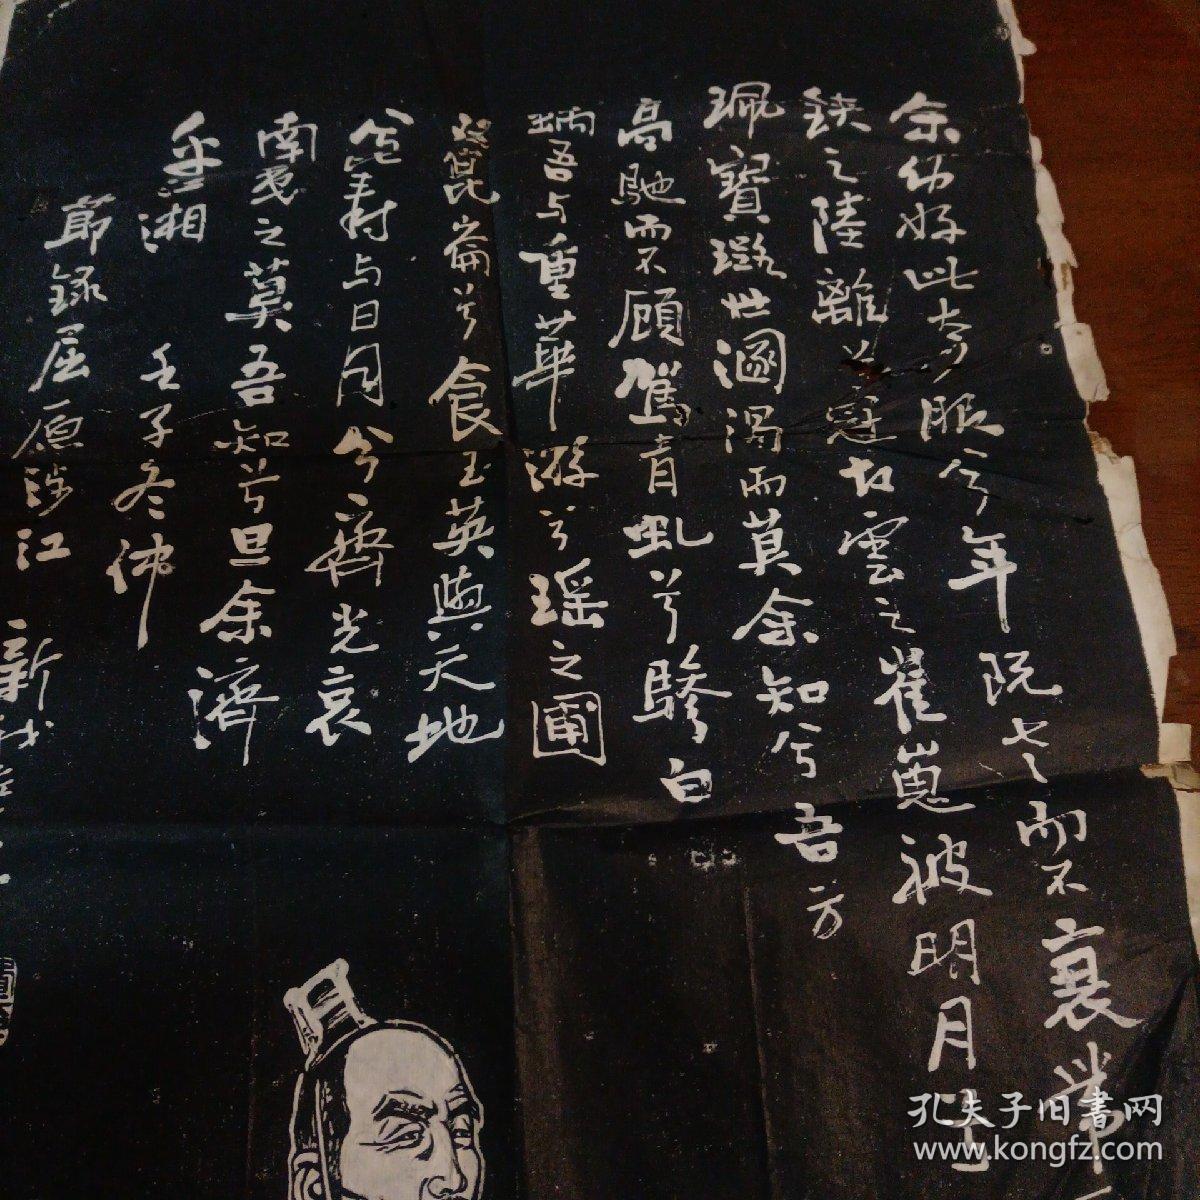 余幼好此奇服兮年既老而不衰带
鋏之陸離兮冠切雲之崔嵬被明月
珮寶璐世溷濁而莫余知兮吾方
高馳而不顧駕青虬兮驂白
螭吾与重華游兮瑶之圃
登崑崙兮食玉英與天地
兮壽与日月兮齊光哀
南夷之莫吾知兮旦余濟
乎江湘
壬子冬仲
節録屈原涉江
新
孔夫子旧書网
www.kongfz.com